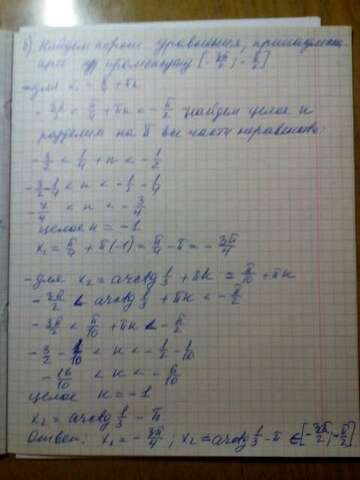 б) Найдем корни уравнения, принадлежа-
щие промежутку [-3π/2; -π/2]
для x₁ = π/4 + πn
-3π/2 < π/4 + πn < -π/2 найдем целое n
разделим на π все части неравенства:
-3/2 < 1/4 + n < -1/2
-3/2 - 1/4 < n < -1/2 - 1/4
-7/4 < n < -3/4
целое n = -1
x₁ = π/4 + π(-1) = π/4 - π = -3π/4
-для x₂ = arctg 1/3 + πn ≈ π/10 + πn
-3π/2 < arctg 1/3 + πn < -π/2
-3π/2 < π/10 + πn < -π/2
-3/2 - 1/10 < n < -1/2 - 1/10
-16/10 < n < -6/10
целое n = -1
x₂ = arctg 1/3 - π
Ответ: x₁ = -3π/4; x₂ = arctg 1/3 - π ∈ [-3π/2; -π/2]